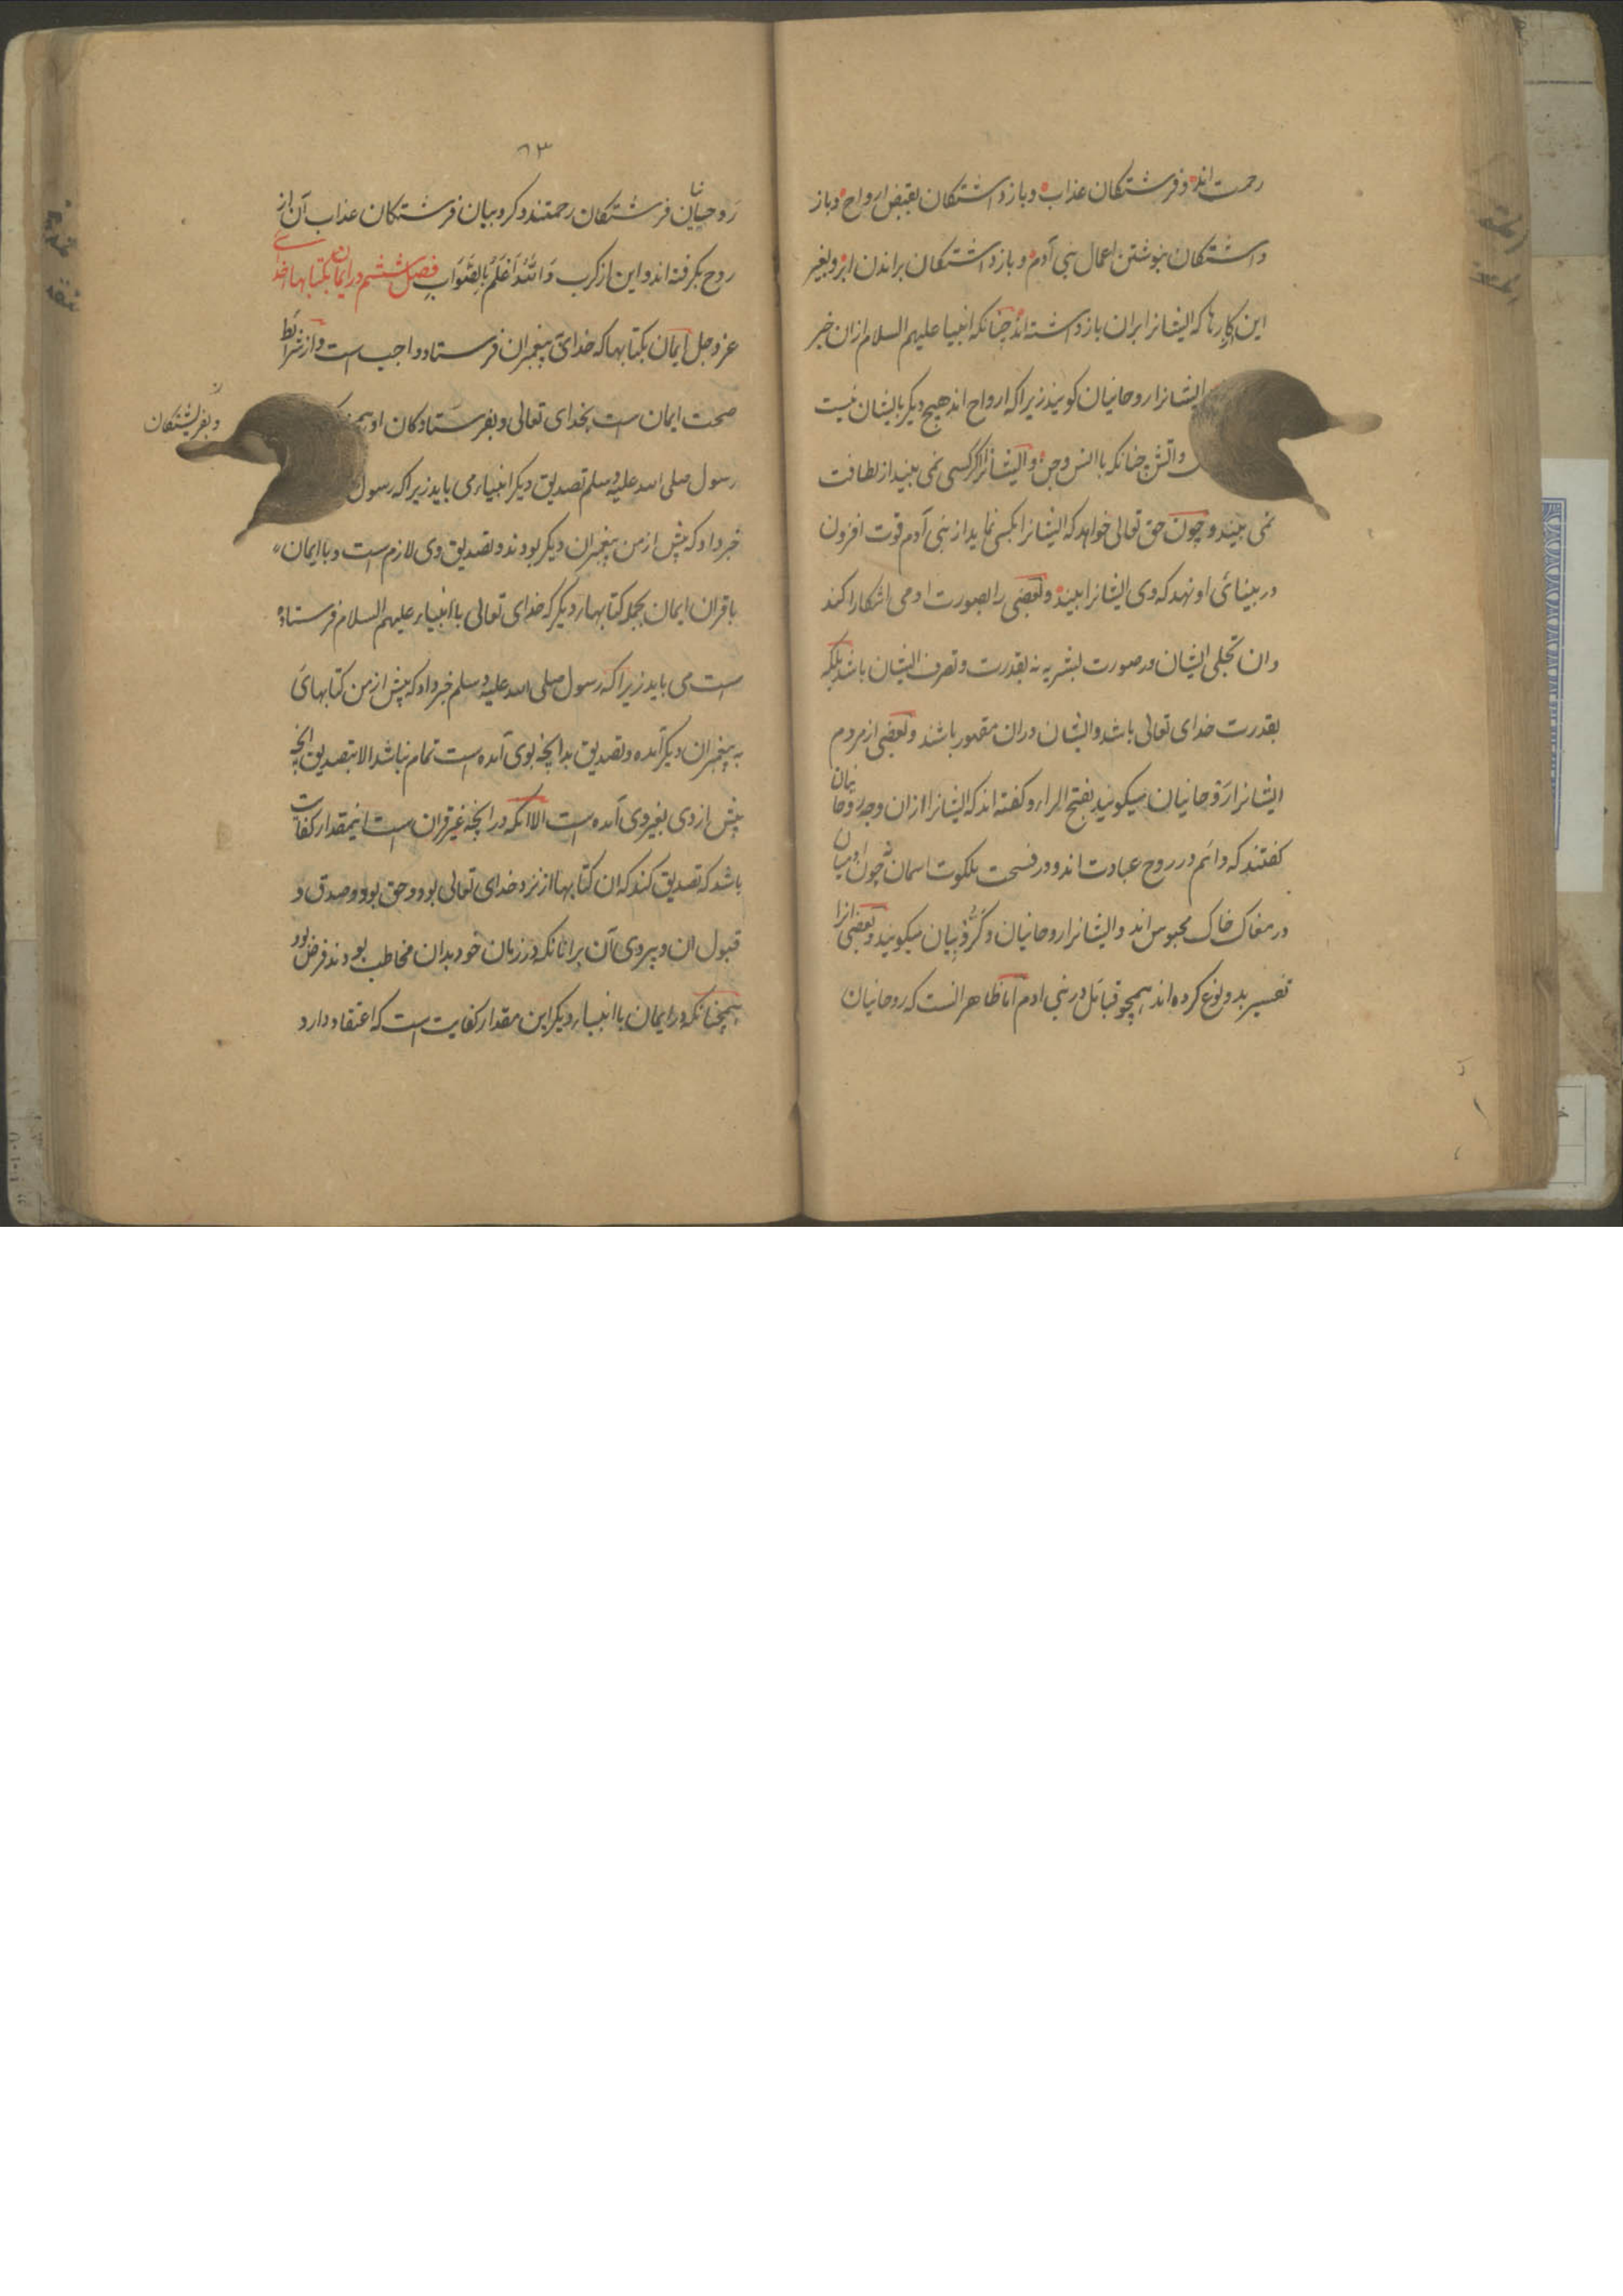 رحمت اند و فرشتکان عذاب و بازداشتکان بقبض ارواح و باز
داشتکان بنوشتن اعمال بنی آدم و بازداشتکان براندن ابر و بغیر
این کارها که ایشانرا بران بازداشته اند چنانکه انبیا علیهم السلام ازان خبر
ایشانرا روحانیان کویند زیرا که ارواح اند هیچ دیکر با ایشان نیست
واتش چنانکه با انس و جن و ایشانرا کسی نمی بیند از لطافت
نمی بیند و چون حق تعالی خواهد که ایشانرا بکسی نماید از بنی آدم قوت افزون
در بینائی او نهد که وی ایشانرا بیند و بعضی را بصورت ادمی اشکارا کند
وان تجلی ایشان در صورت بشریه نه بقدرت و تصرف ایشان باشد بلکه
بقدرت خدای تعالی باشد و ایشان دران مقهور باشند و بعضی از مردم
ایشانرا رَوحانیان میکویند بفتح الراء و کفته اند که ایشانرا ازان وجه روحانیان
کفتند که دائم در روح عبادت اند و در فسحت ملکوت اسمان نه چون ادمیان
در مغاک خاک محبوس اند و ایشانرا روحانیان و کَرُّوبیان میکویند و بعضی انرا
تفسیر بدو نوع کرده اند همچو قبائل در بنی ادم اما ظاهر انست که روحانیان
۶۳
رَوحانیان فرشتکان رحمتند و کروبیان فرشتکان عذاب آن از
روح بکرفته اند و این از کرب وَاللهُ اَعْلَمُ بِالصَّوَابِ فصل ششم در ایمان بکتابهاء خدای
عز و جل ایمان بکتابها که خدای پیغمبران فرستاد واجب است و از شرائط
صحت ایمان است بخدای تعالی و بفرستادکان او
و بفرشتکان
رسول صلی الله علیه وسلم تصدیق دیکر انبیاء می باید زیرا که رسول
خبر داد که پیش از من پیغمبران دیکر بودند و تصدیق وی لازم است و با ایمان
با قران ایمان بجمله کتابهاء دیکر که خدای تعالی با انبیاء علیهم السلام فرستاده
است می باید زیرا که رسول صلی الله علیه وسلم خبر داد که پیش از من کتابهای
به پیغمبران دیکر آمده و تصدیق بدانچه بوی آمده است تمام نباشد الا بتصدیق انچه
پیش از وی بغیر وی آمده است الا انکه در انچه غیر قران است اینمقدار کفایت
باشد که تصدیق کند که ان کتابها از نزد خدای تعالی بود و حق بود و صدق و
قبول ان و پیروی آن برانانکه در زبان خود بدان مخاطب بودند فرض بود
همچنانکه در ایمان با انبیاء دیکر این مقدار کفایت است که اعتقاد دارد